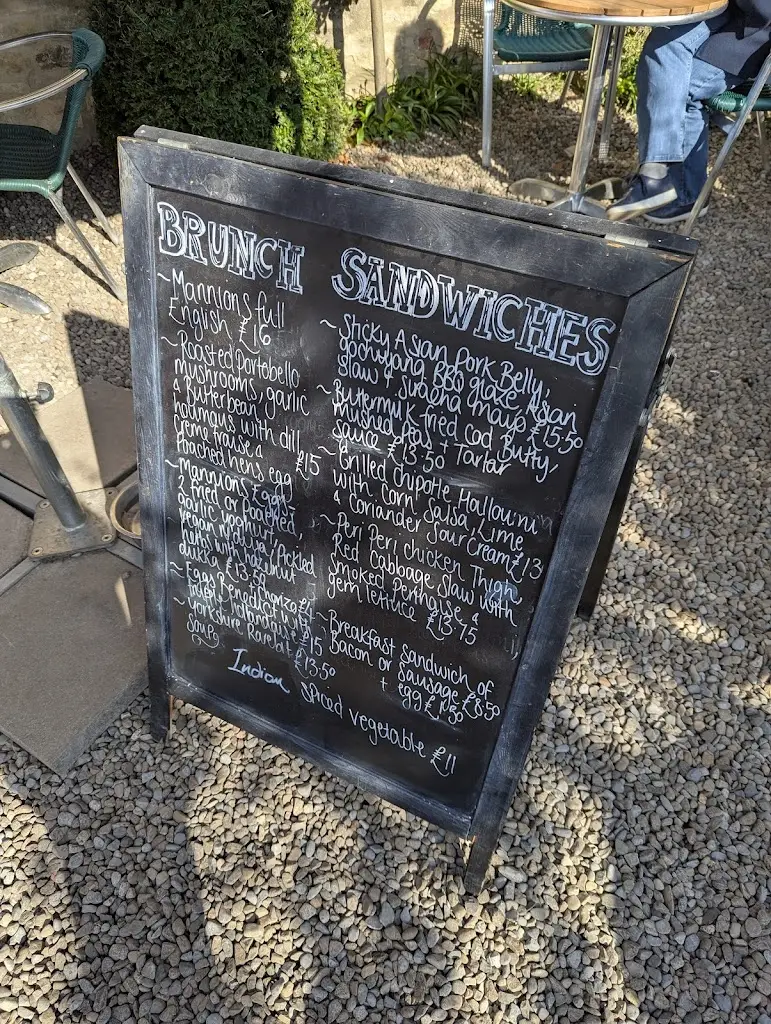 BRUNCH
~ Mannions full
English £16
~ Roasted Portobello
mushrooms, garlic
& Butterbean
houmous with dill
creme fraise &
Poached hens egg £15
~ Mannions Eggs
2 fried or poached,
garlic yoghurt,
vegan nduja, Pickled
herbs with hazelnut
dukka £13.50
~ Eggs Benedict with
~ Yorkshire Rarebit £13.50
Soup
Indian spiced vegetable £11
SANDWICHES
~ Sticky Asian Pork Belly,
gochujang BBQ glaze, Asian
slaw + siracha mayo £15.50
~ Buttermilk fried cod Butty,
mushed peas + Tartar
sauce £13.50
~ Grilled chipotle Halloumi
with corn salsa, Lime
& Coriander Sour Cream £13
~ Peri Peri chicken Thigh
Red cabbage slaw with
smoked Perinaise &
gem lettuce £13.75
~ Breakfast sandwich of
Bacon or sausage £8.50
+ egg £1.50